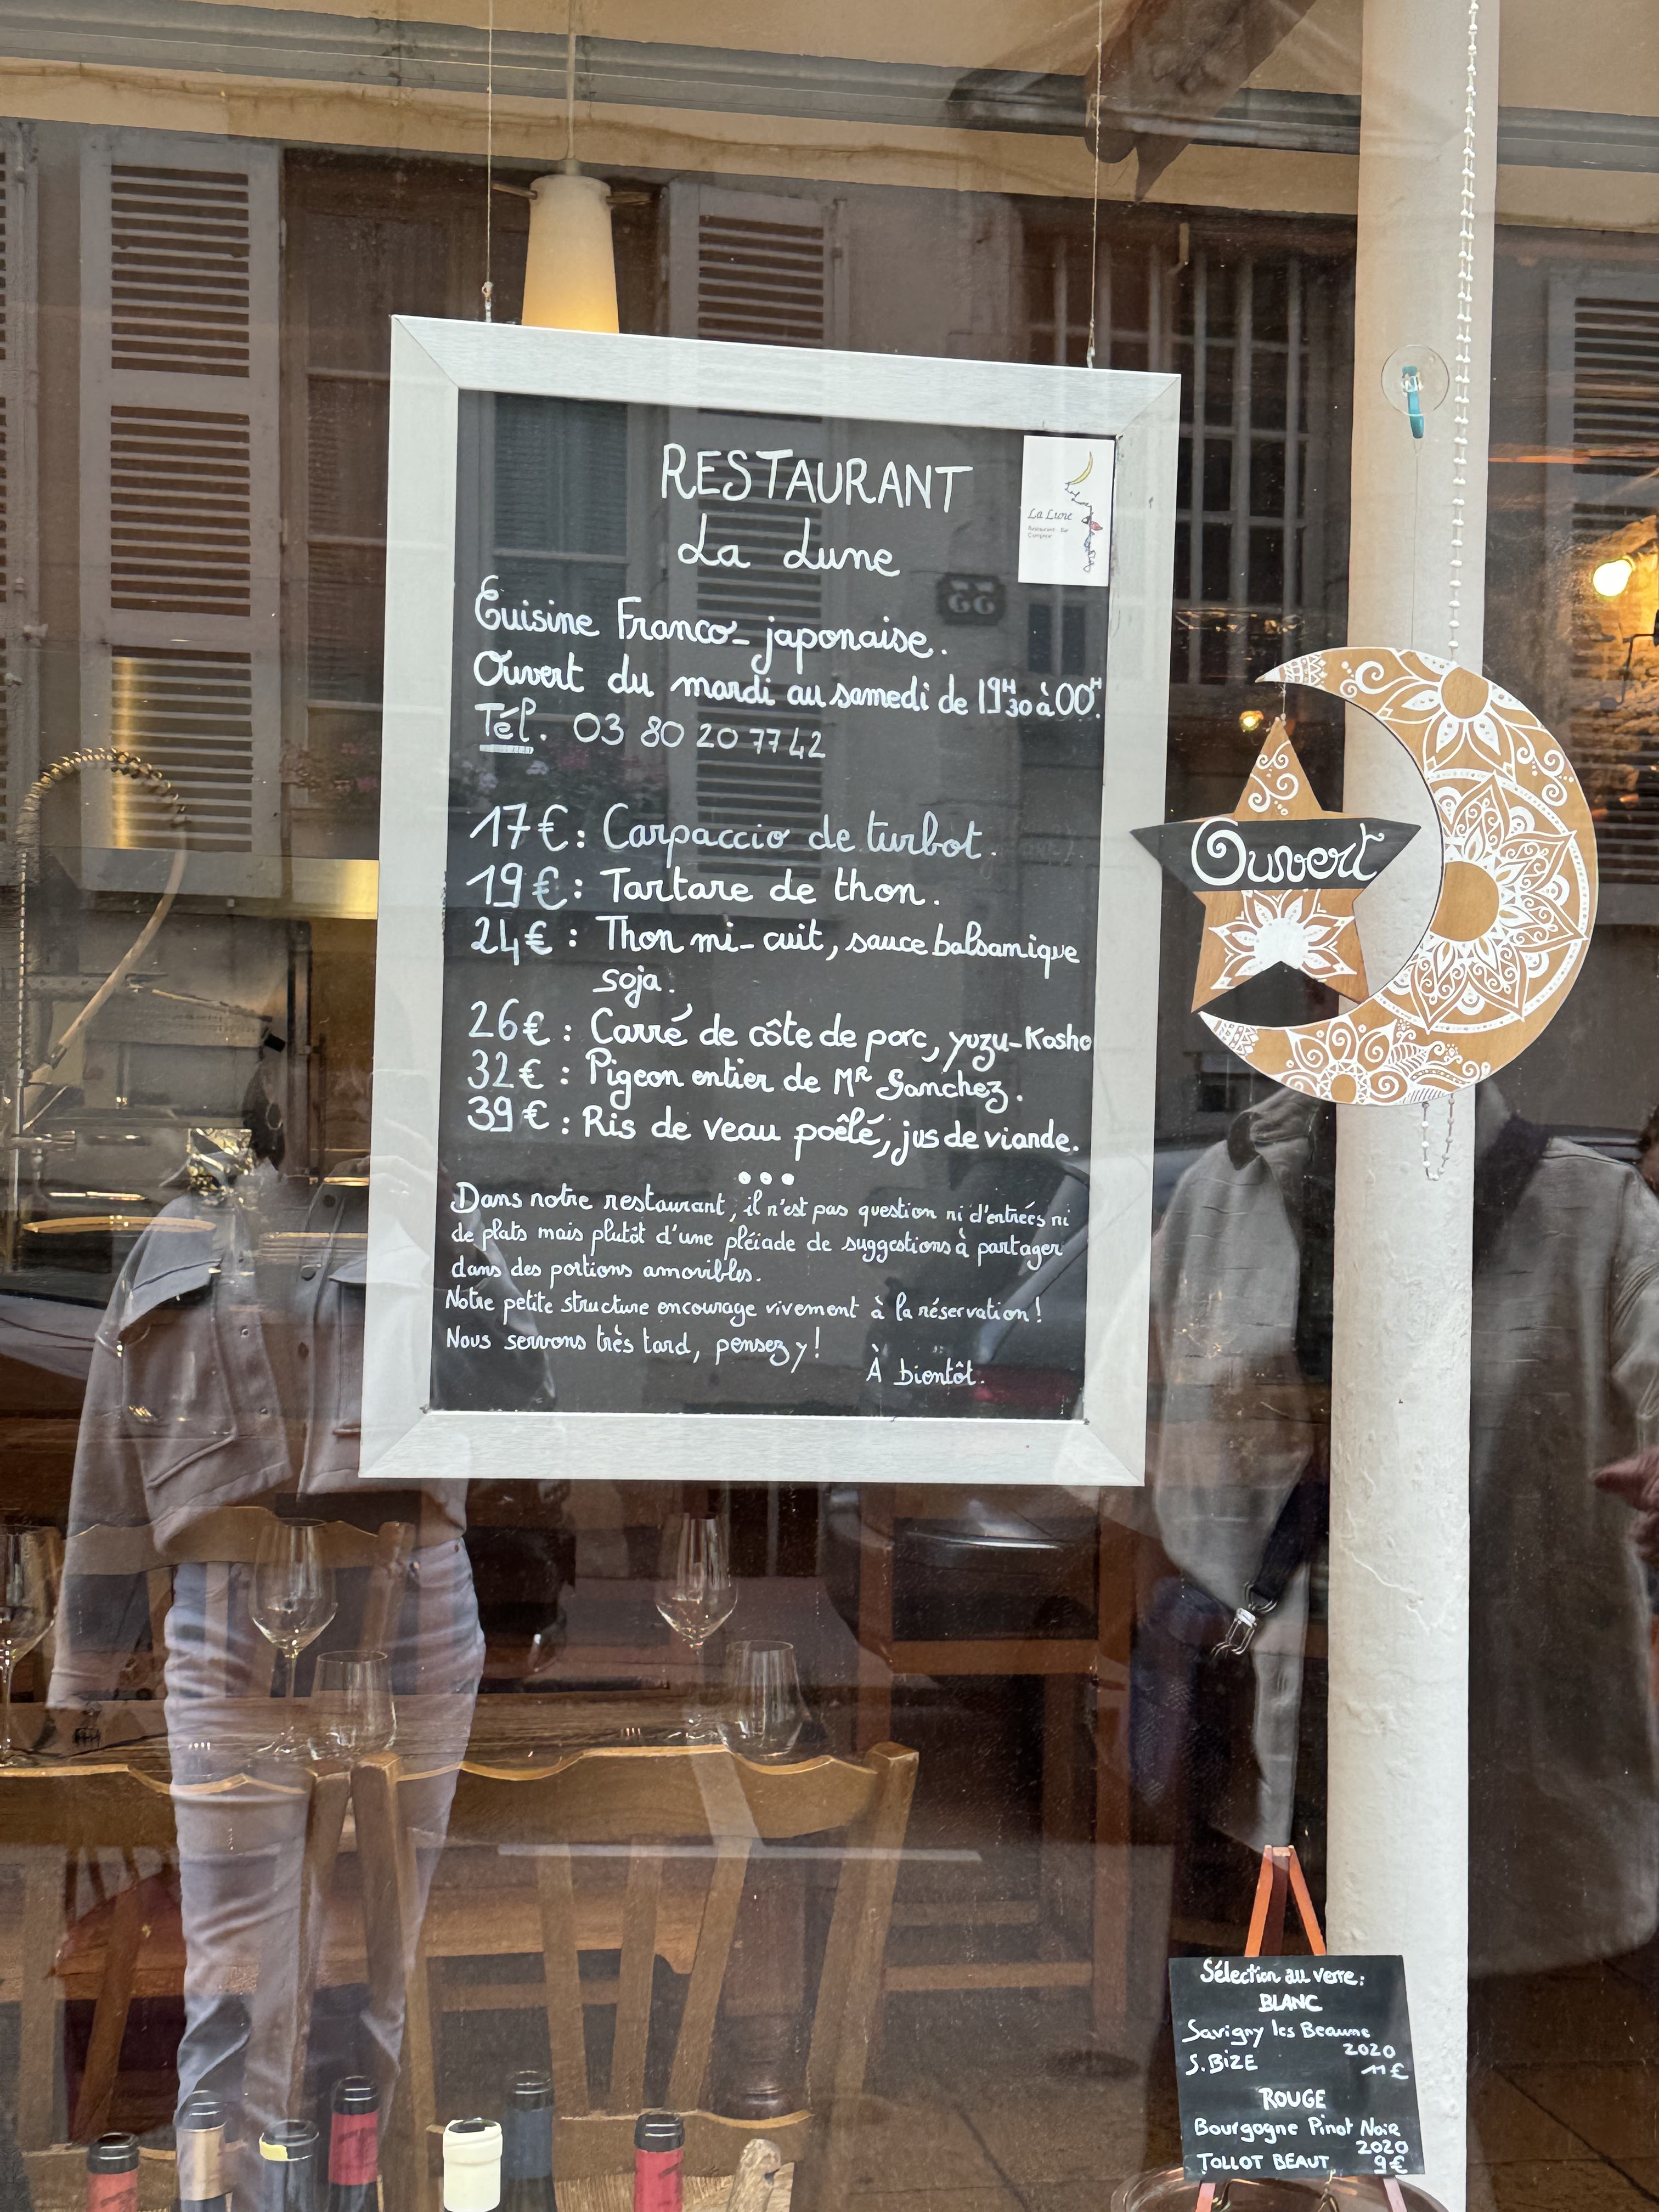 RESTAURANT
La Lune
La Lune
Restaurant Bar
Comptoir
Cuisine Franco-japonaise.
Ouvert du mardi au samedi de 19H30 à 00H.
Tél. 03 80 20 77 42
33
17€ : Carpaccio de turbot.
19€ : Tartare de thon.
24€ : Thon mi-cuit, sauce balsamique
soja.
26€ : Carré de côte de porc, yuzu-Kosho
32€ : Pigeon entier de MR Sanchez.
39€ : Ris de veau poêlé, jus de viande.
...
Dans notre restaurant, il n'est pas question ni d'entrées ni
de plats mais plutôt d'une pléiade de suggestions à partager
dans des portions amovibles.
Notre petite structure encourage vivement à la réservation !
Nous servons très tard, pensez y !
À bientôt.
Ouvert
Sélection au verre :
BLANC
Savigny les Beaune
2020
S. BIZE 11€
ROUGE
Bourgogne Pinot Noir
2020
TOLLOT BEAUT 9€